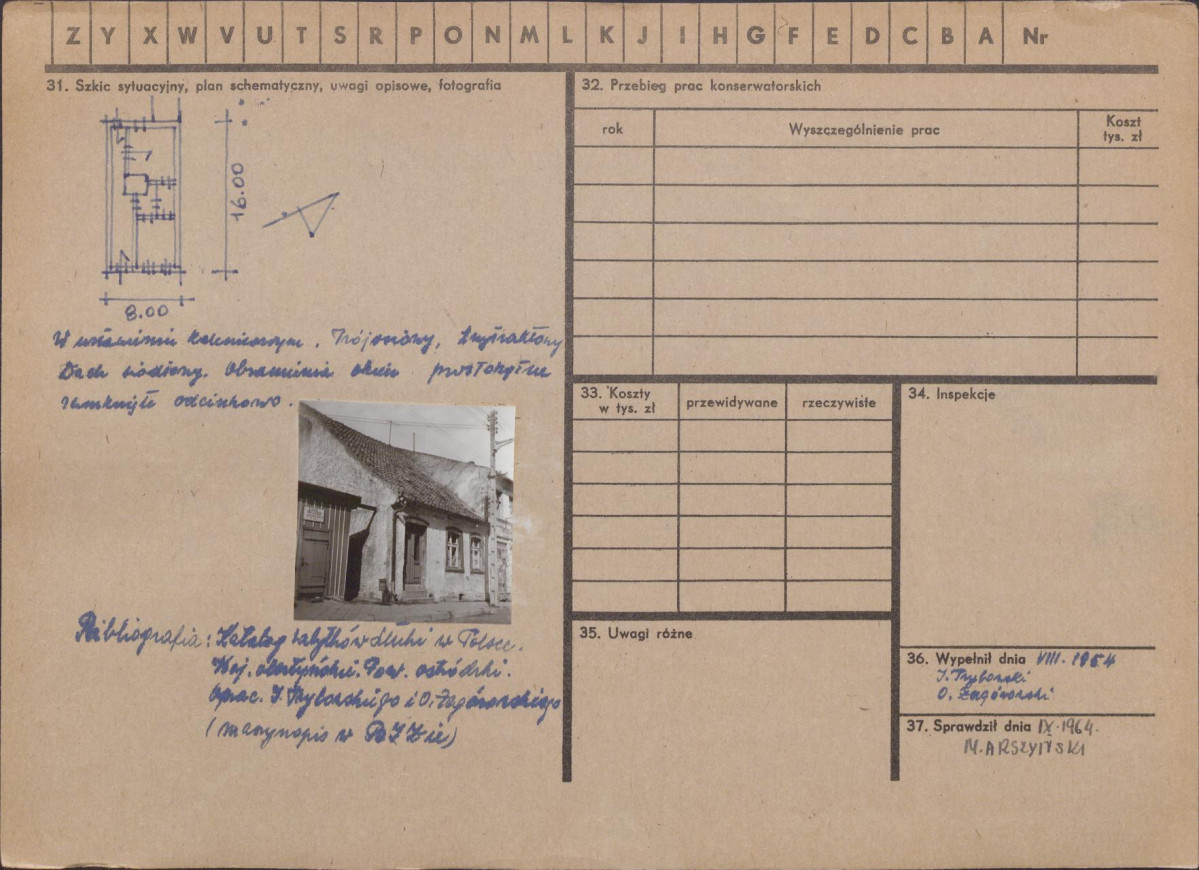 Z Y X W V U T S R P O N M L K J I H G F E D C B A Nr
31. Szkic sytuacyjny, plan schematyczny, uwagi opisowe, fotografia
16.00
8.00
W Trójosiowy,
Dach siodłowy. Obramienia okien prostokątne
zamknięte odcinkowo.
Bibliografia: Katalog zabytków sztuki w Polsce.
Woj. olsztyńskie. Pow. ostródzki.
oprac. J. Przyborskiego i O. Zagórowskiego
(maszynopis w
32. Przebieg prac konserwatorskich
rok Wyszczególnienie prac Koszt
tys. zł
33. Koszty
w tys. zł przewidywane rzeczywiste
34. Inspekcje
35. Uwagi różne
36. Wypełnił dnia VIII. 1954
O. Zagórowski
37. Sprawdził dnia IX. 1964.
M. ARSZYŃSKI